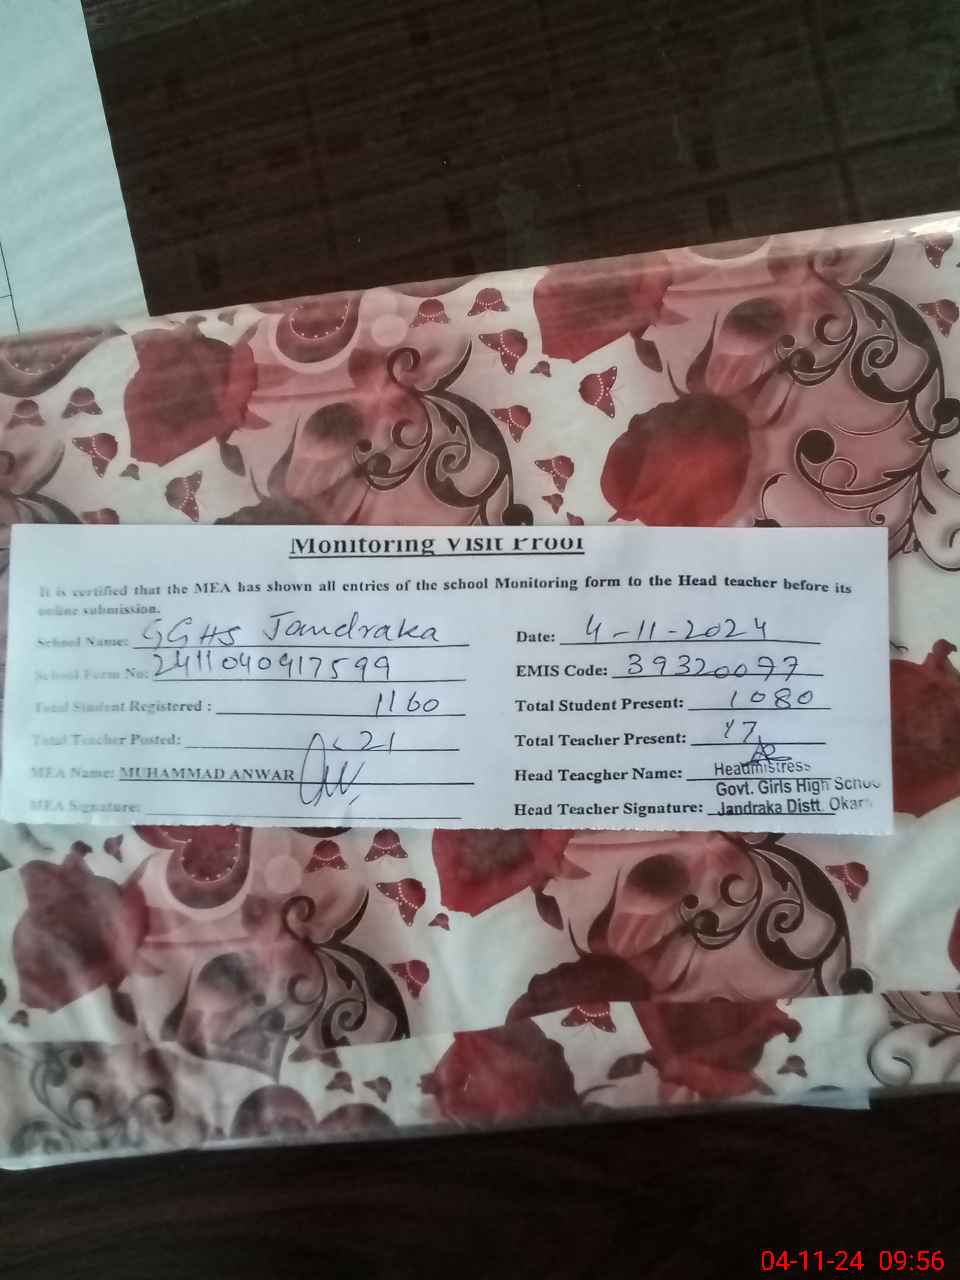 Monitoring Visit Proof
It is certified that the MEA has shown all entries of the school Monitoring form to the Head teacher before its
online submission.
School Name: GGHS Jandraka Date: 4-11-2024
School Form No: 2411040917599 EMIS Code: 39320077
Total Student Registered : 1160 Total Student Present: 1080
Total Teacher Posted: 21 Total Teacher Present: 17
MEA Name: MUHAMMAD ANWAR Head Teacgher Name: Headmistress
Govt. Girls High School
MEA Signature: Head Teacher Signature: Jandraka Distt. Okara
04-11-24 09:56